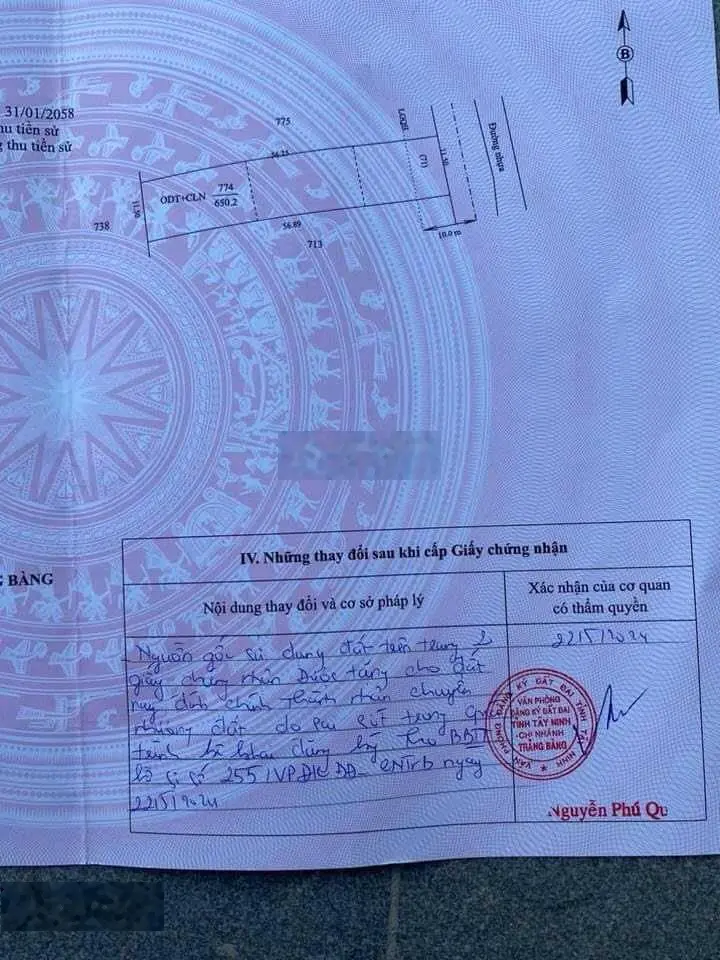 31/01/2058
thu tiền sử
thu tiền sử
B
775
LQCH
Đường nhựa
56.25
(71)
11.50
ODT+CLN 774
650.2
11.50
738
56.89
713
10.0 m
BÀNG
IV. Những thay đổi sau khi cấp Giấy chứng nhận
Nội dung thay đổi và cơ sở pháp lý
Xác nhận của cơ quan
có thẩm quyền
Nguồn gốc sử dụng đất trên trang 2
giấy chứng nhận Được tặng cho đất
nay đính chính thành nhận chuyển
nhượng đất do sai sót trong
trình
số 255/VPĐK ĐĐ-CNTrB ngày
22/5/2024
22/5/2024
VĂN PHÒNG ĐĂNG KÝ ĐẤT ĐAI TỈNH TÂY NINH
VĂN PHÒNG
ĐĂNG KÝ ĐẤT ĐAI
TỈNH TÂY NINH
CHI NHÁNH
TRẢNG BÀNG
Nguyễn Phú